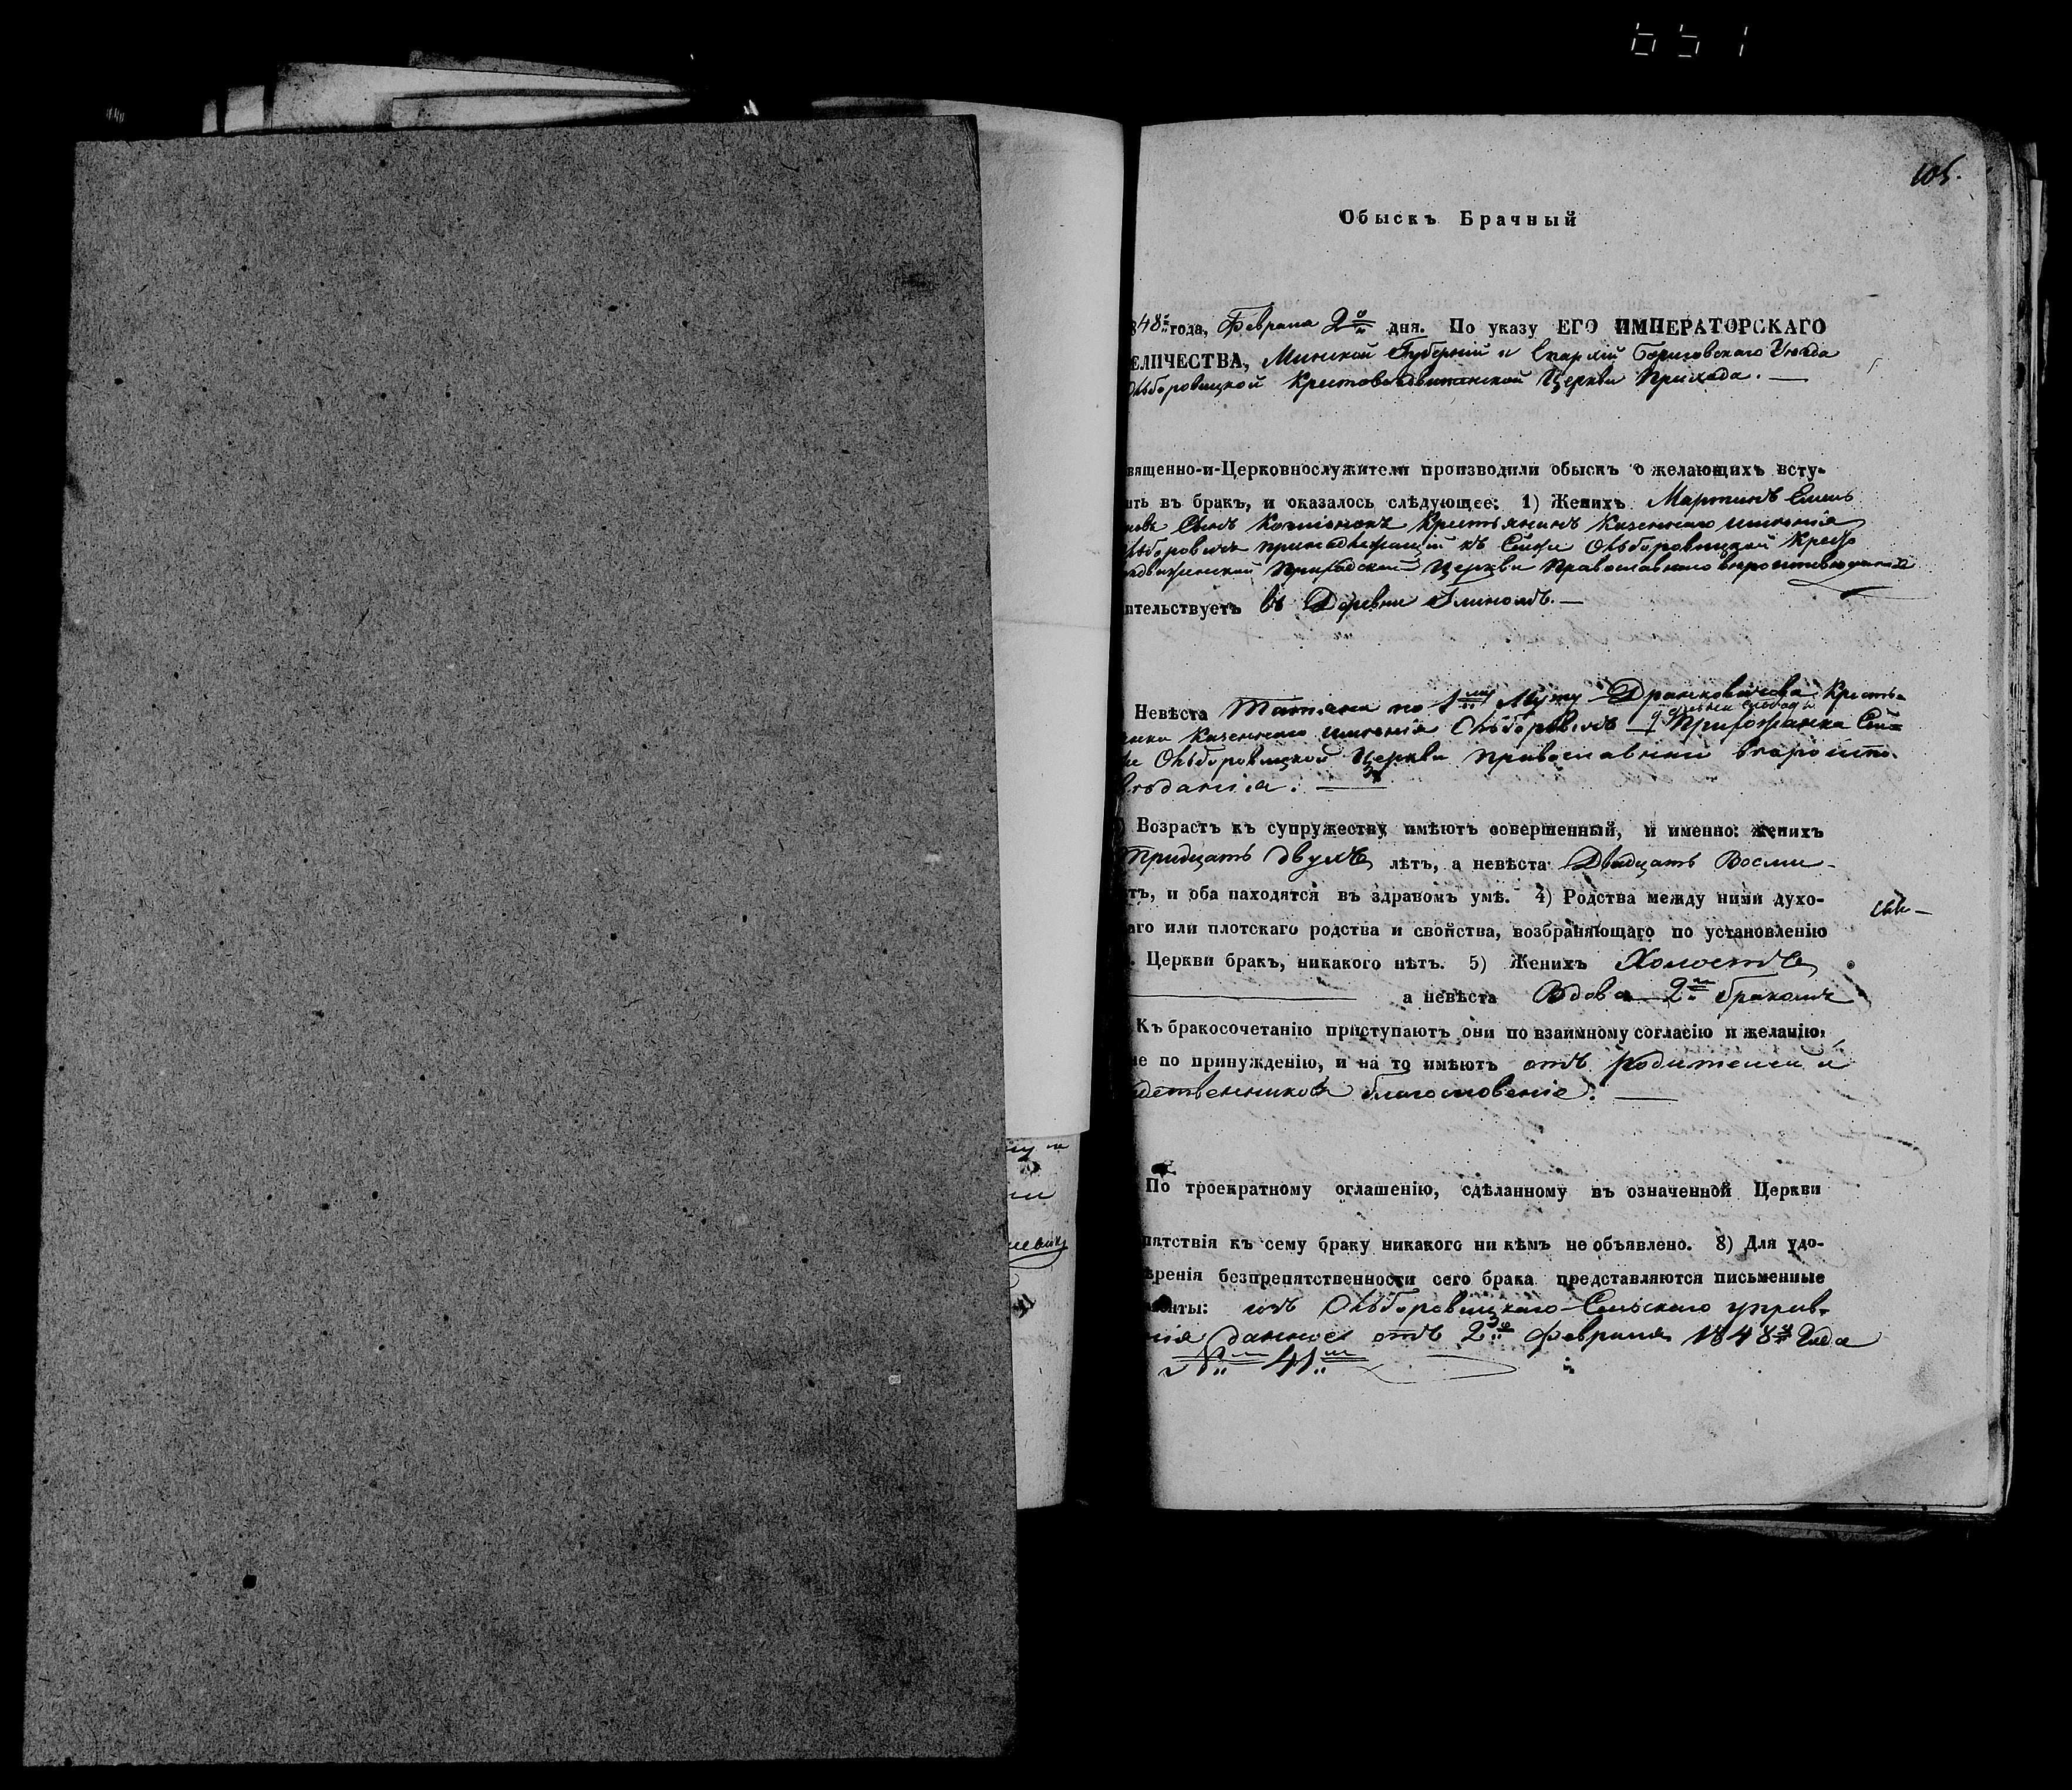 651
105.
Обыскъ Брачный
848 года, Февраля 2го дня. По указу ЕГО ИМПЕРАТОРСКАГО
ЕЛИЧЕСТВА, Минской Губерніи и Епархіи Борисовскаго Уѣзда
Крестовоздвиженской Церкви Прихода. —
вященно-и-Церковнослужители производили обыскъ о желающихъ всту-
ить въ брак, и оказалось слѣдующее: 1) Женихъ Мартинъ
Сынъ Крестьянинъ Казеннаго имѣнія
принадлежащій къ Кресто
здвиженской Приходской Церкви Православнаго вѣроисповѣданія
ительствуетъ въ Деревни
Невѣста Татіана по 1му Мужу Кресть-
янка Казеннаго имѣнія деревни Слободы Прихожанка
же Церкви православнаго вѣроиспо-
вѣданія. —
Возрастъ къ супружеству имѣютъ совершенный, и именно: жених
тридцать двухъ лѣтъ, а невѣста Двадцать Восми -
тъ, и оба находятся въ здравомъ умѣ. 4) Родства между ними духо-
аго или плотскаго родства и свойства, возбраняющаго по установленію
. Церкви брак, никакого нѣтъ. 5) Женихъ Холостъ
а невѣста Вдова 2мъ бракомъ
Къ бракосочетанію приступаютъ они по взаимному согласію и желанію,
не по принужденію, и на то имѣютъ отъ родителей и
дственниковъ благословеніе. —
По троекратному оглашенію, сдѣланному въ означенной Церкви
пятствія къ сему браку никакого ни кѣмъ не объявлено. 8) Для удо-
ѣренія безпрепятственности сего брака представляются письменные
менты: изъ Сельскаго управ-
нія данное отъ 2го февраля 1848го Года
№мъ 41мъ